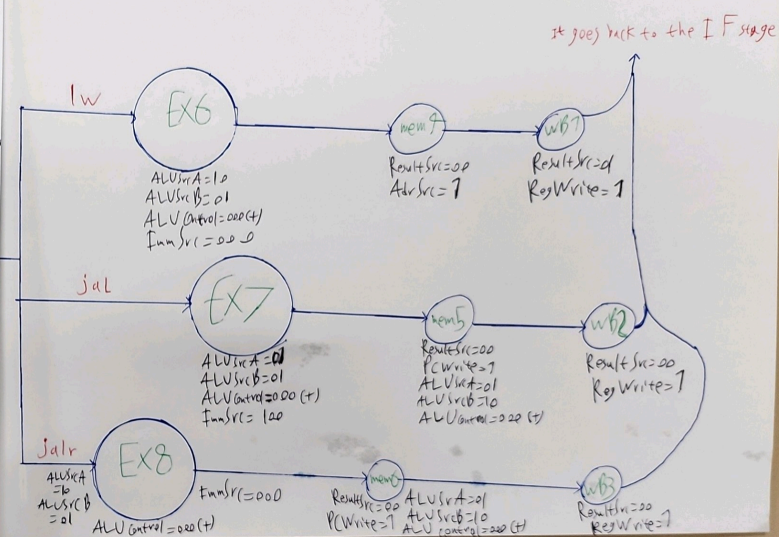 It goes back to the IF stage
lw
EX6
mem4
WB1
ALUSrcA=10
ALUSrcB=01
ALUControl=000(+)
ImmSrc=000
ResultSrc=00
AdrSrc=1
ResultSrc=01
RegWrite=1
jal
EX7
mem5
WB2
ALUSrcA=01
ALUSrcB=01
ALUControl=000(+)
ImmSrc=100
ResultSrc=00
PCWrite=1
ALUSrcA=01
ALUSrcB=10
ALUControl=000(+)
ResultSrc=00
RegWrite=1
jalr
EX8
mem6
WB3
ALUSrcA
=10
ALUSrcB
=01
ALUControl=000(+)
ImmSrc=000
ResultSrc=00
PCWrite=1
ALUSrcA=01
ALUSrcB=10
ALUControl=000(+)
ResultSrc=00
RegWrite=1